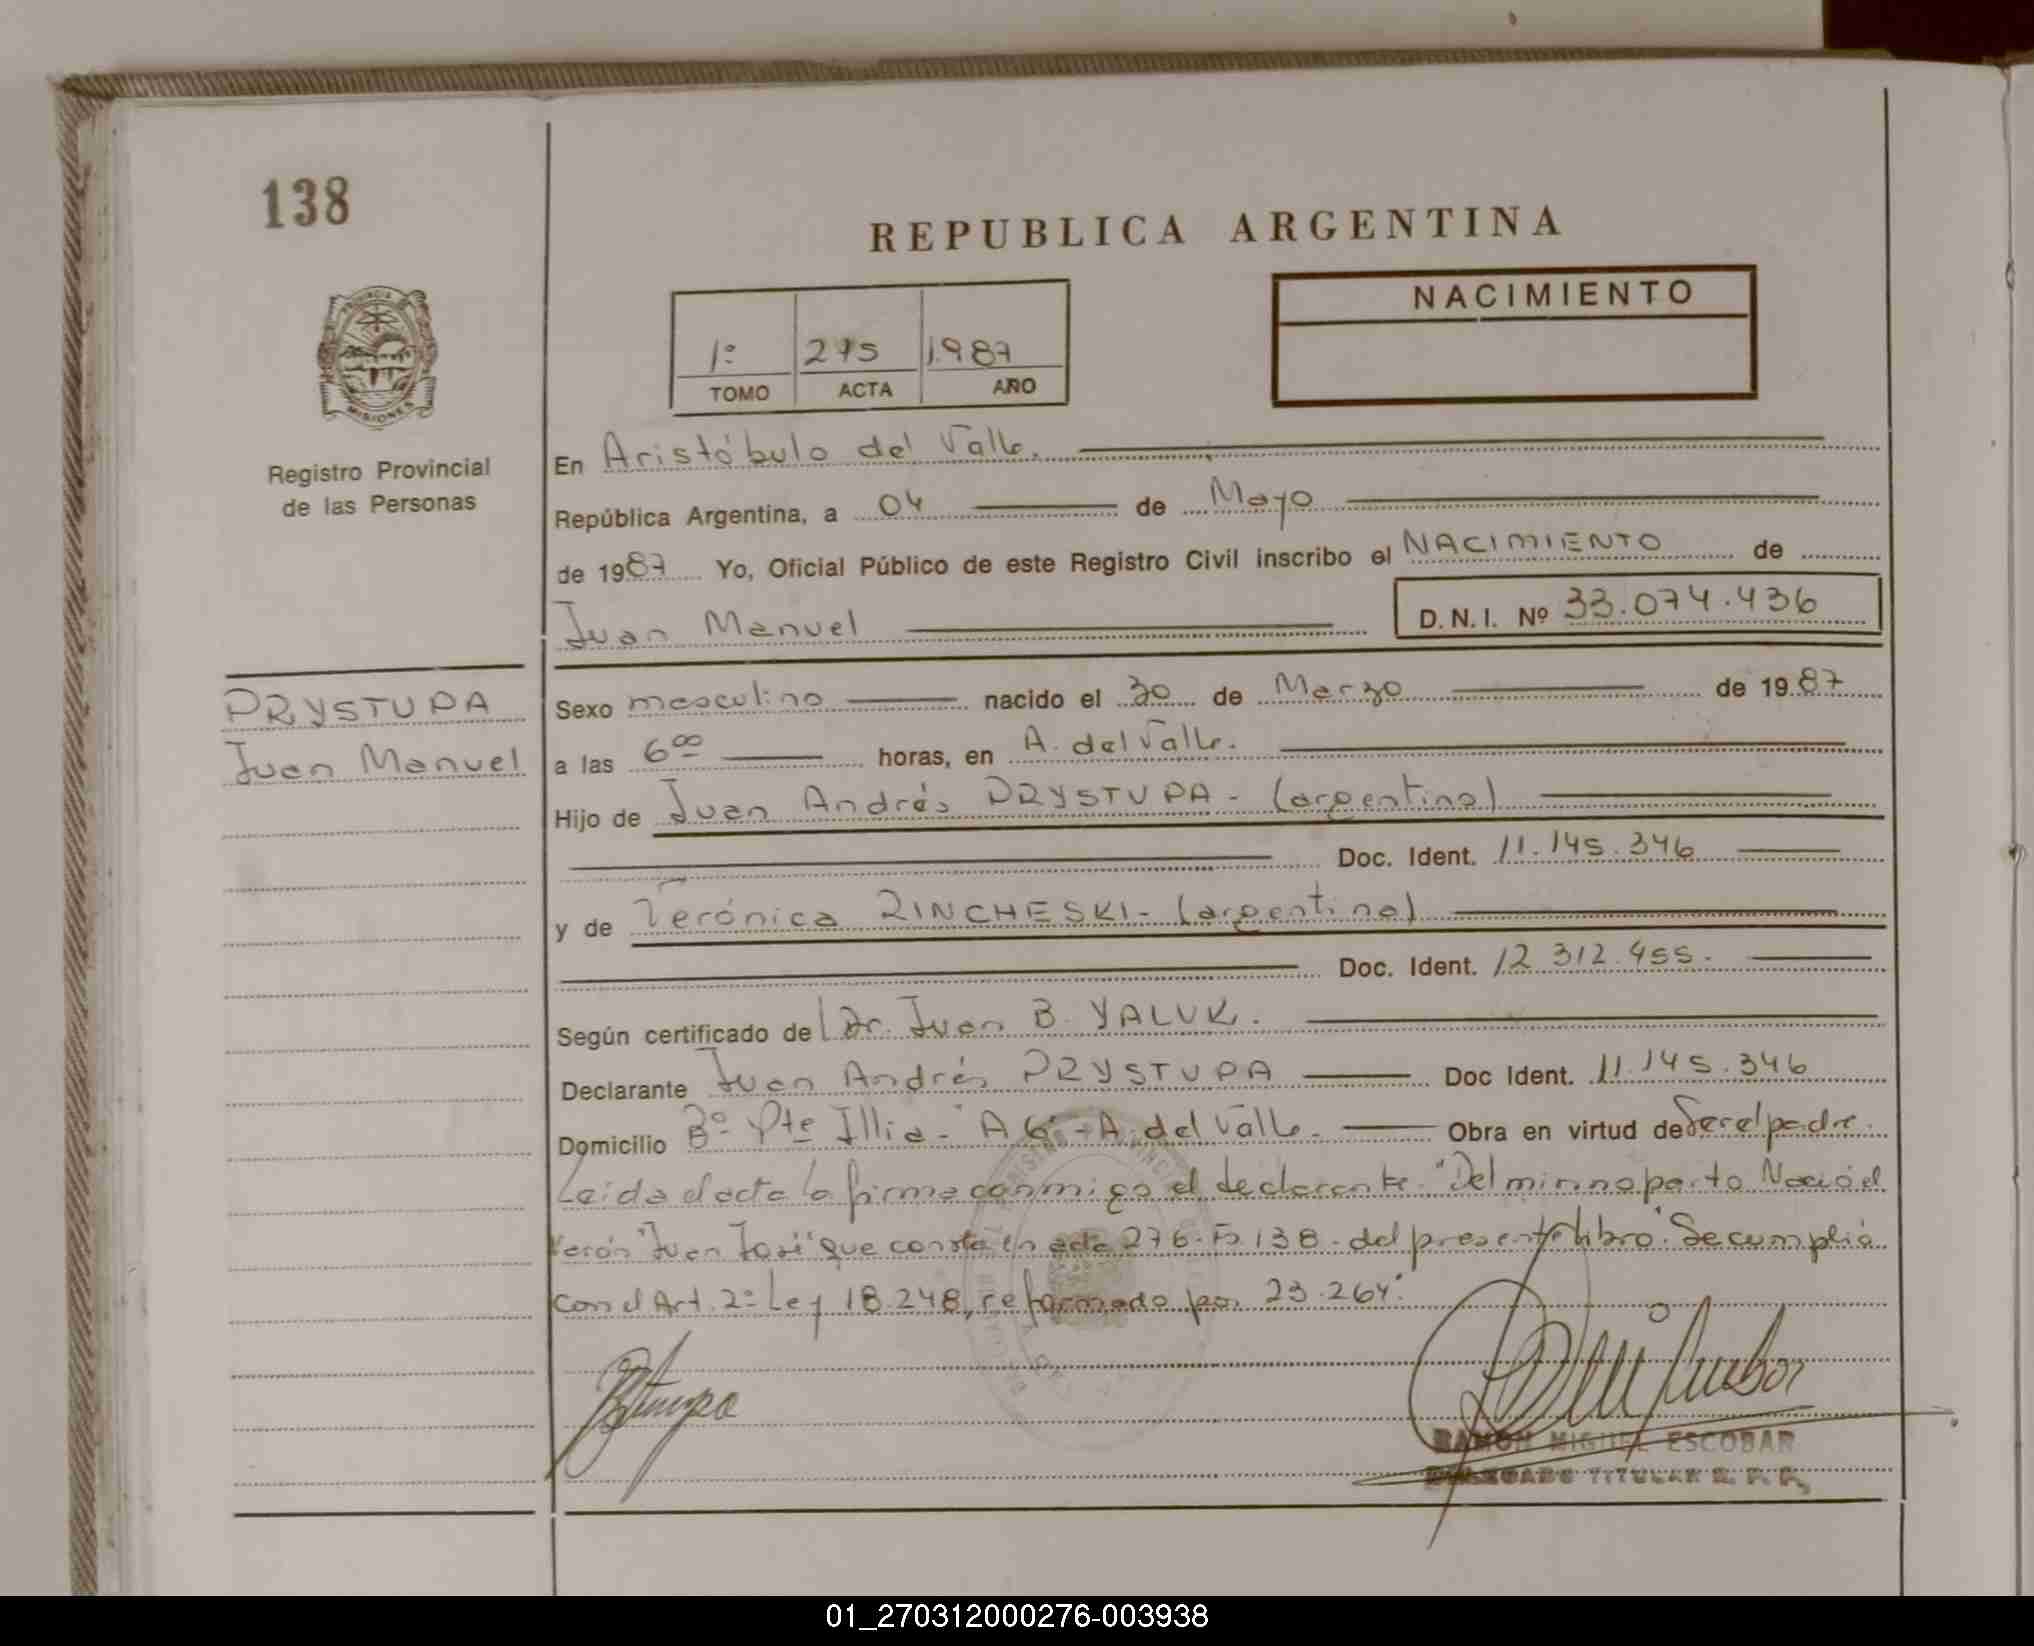 138
REPUBLICA ARGENTINA
NACIMIENTO
1º 275 1.987
TOMO ACTA AÑO
PROVINCIA DE
MISIONES
Registro Provincial
de las Personas
En Aristóbulo del Valle.
República Argentina, a 04 de Mayo
de 1987 Yo, Oficial Público de este Registro Civil inscribo el NACIMIENTO de
Juan Manuel D.N.I. Nº 33.074.436
PRYSTUPA
Juan Manuel
Sexo masculino nacido el 30 de Marzo de 1987
a las 6⁰⁰ horas, en A. del Valle.
Hijo de Juan Andrés PRYSTUPA - (argentino)
Doc. Ident. 11.145.346
y de Verónica RINCHESKI - (argentina)
Doc. Ident. 12.312.455.
Según certificado del Dr. Juan B. YALUK.
Declarante Juan Andrés PRYSTUPA Doc Ident. 11.145.346
Domicilio Bº Pte Illia - A 6 - A. del Valle. Obra en virtud de Ser el padre.
Leida el acta la firma conmigo el declarante. "Del mismo parto Nació el
Verón "Juan José" que consta en acta 276. Fº 138. del presente libro". Se cumplió
con el Art. 2º Ley 18.248, reformado por 23.264".
RAMON MIGUEL ESCOBAR
DELEGADO TITULAR R. P. P.
01_270312000276-003938